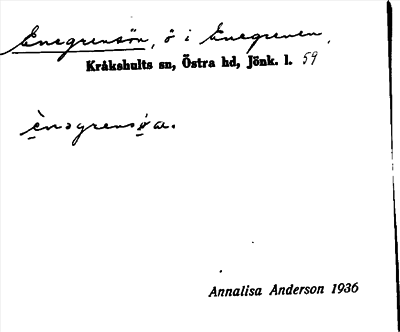 Enegrensön, ö i Enegrenen,
Kråkshults sn, Östra hd, Jönk. l. 59
Annalisa Anderson 1936